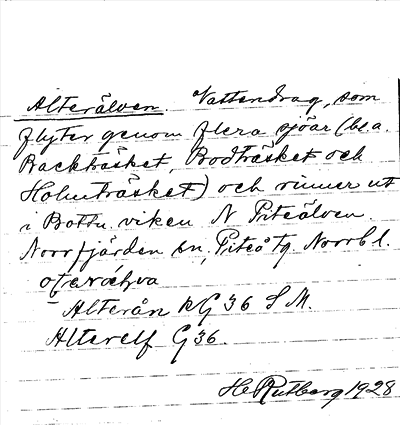 Alterälven Vattendrag, som
flyter genom flera sjöar (bl.a.
Backträsket, Bodträsket och
Holmträsket) och rinner ut
i Bottn. viken N Piteälven.
Norrfjärden sn, Piteå tg Norrb l.
Alterån kG 36 S M.
Alterelf G 36.
H Rutberg 1928